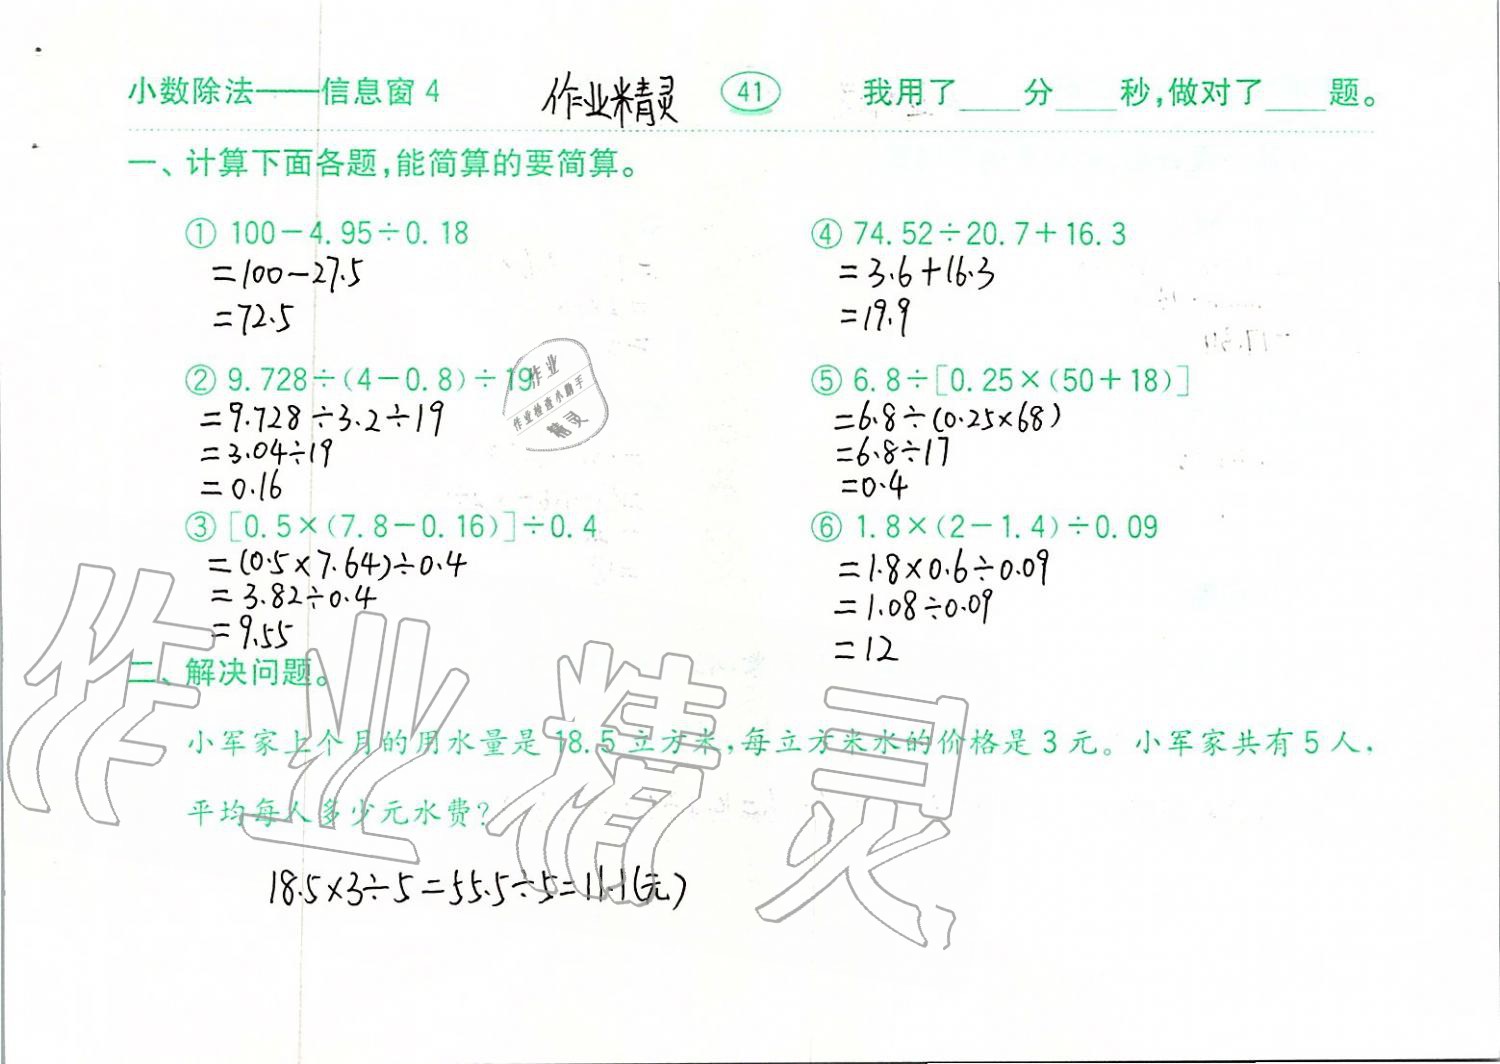 小数除法——信息窗4 作业精灵 41 我用了____分____秒,做对了____题。
一、计算下面各题,能简算的要简算。
① 100－4.95÷0.18
=100－27.5
=72.5
② 9.728÷(4－0.8)÷19
=9.728÷3.2÷19
=3.04÷19
=0.16
③ [0.5×(7.8－0.16)]÷0.4
=(0.5×7.64)÷0.4
=3.82÷0.4
=9.55
④ 74.52÷20.7＋16.3
=3.6+16.3
=19.9
⑤ 6.8÷[0.25×(50＋18)]
=6.8÷(0.25×68)
=6.8÷17
=0.4
⑥ 1.8×(2－1.4)÷0.09
=1.8×0.6÷0.09
=1.08÷0.09
=12
作业
作业检查小助手
精灵
二、解决问题。
小军家上个月的用水量是18.5立方米,每立方米水的价格是3元。小军家共有5人,
平均每人多少元水费?
18.5×3÷5=55.5÷5=11.1(元)
作业精灵